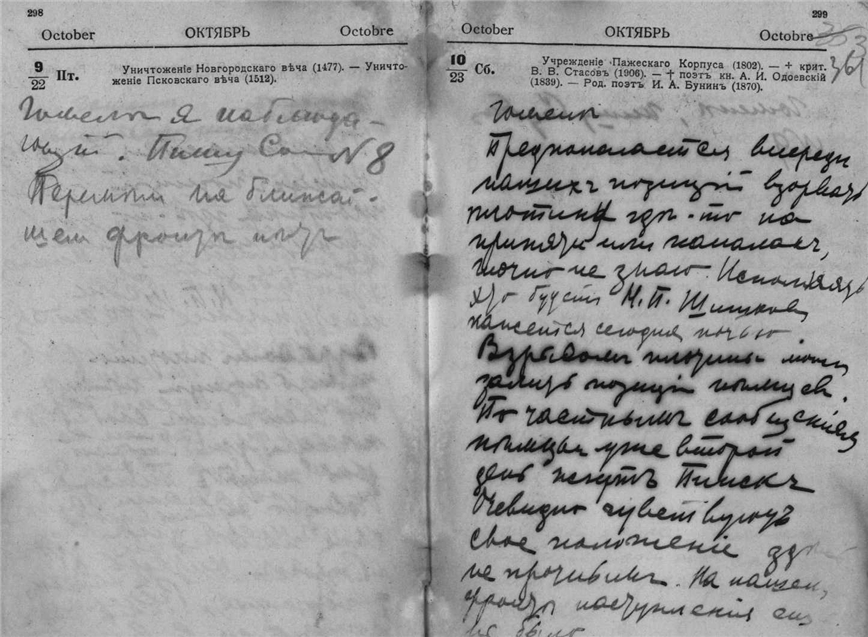 298
October ОКТЯБРЬ Octobre
9
22 Пт. Уничтоженіе Новгородскаго вѣча (1477). — Уничто-
женіе Псковскаго вѣча (1512).
я наблюда-
ющій. Пишу № 8
Перемѣны на ближай-
шем фронтѣ нѣтъ
299
October ОКТЯБРЬ Octobre
361
10
23 Сб. Учрежденіе Пажескаго Корпуса (1802). — † крит.
В. В. Стасовъ (1906). — † поэтъ кн. А. И. Одоевскій
(1839). — Род. поэтъ И. А. Бунинъ (1870).
Предполагается впереди
нашихъ позицій взорвать
плотину гдѣ-то на
припяти или каналах,
точно не знаю. Исполнять
это будетъ М. П. Шишков
кажется сегодня ночью.
Взрывом плотины
залить позиціи нѣмцев.
По частным сообщеніям
нѣмцы уже второй
день жгутъ Пинскъ
Очевидно чувствуютъ
свое положеніе
не прочным. На нашем
фронтѣ наступленія
не было